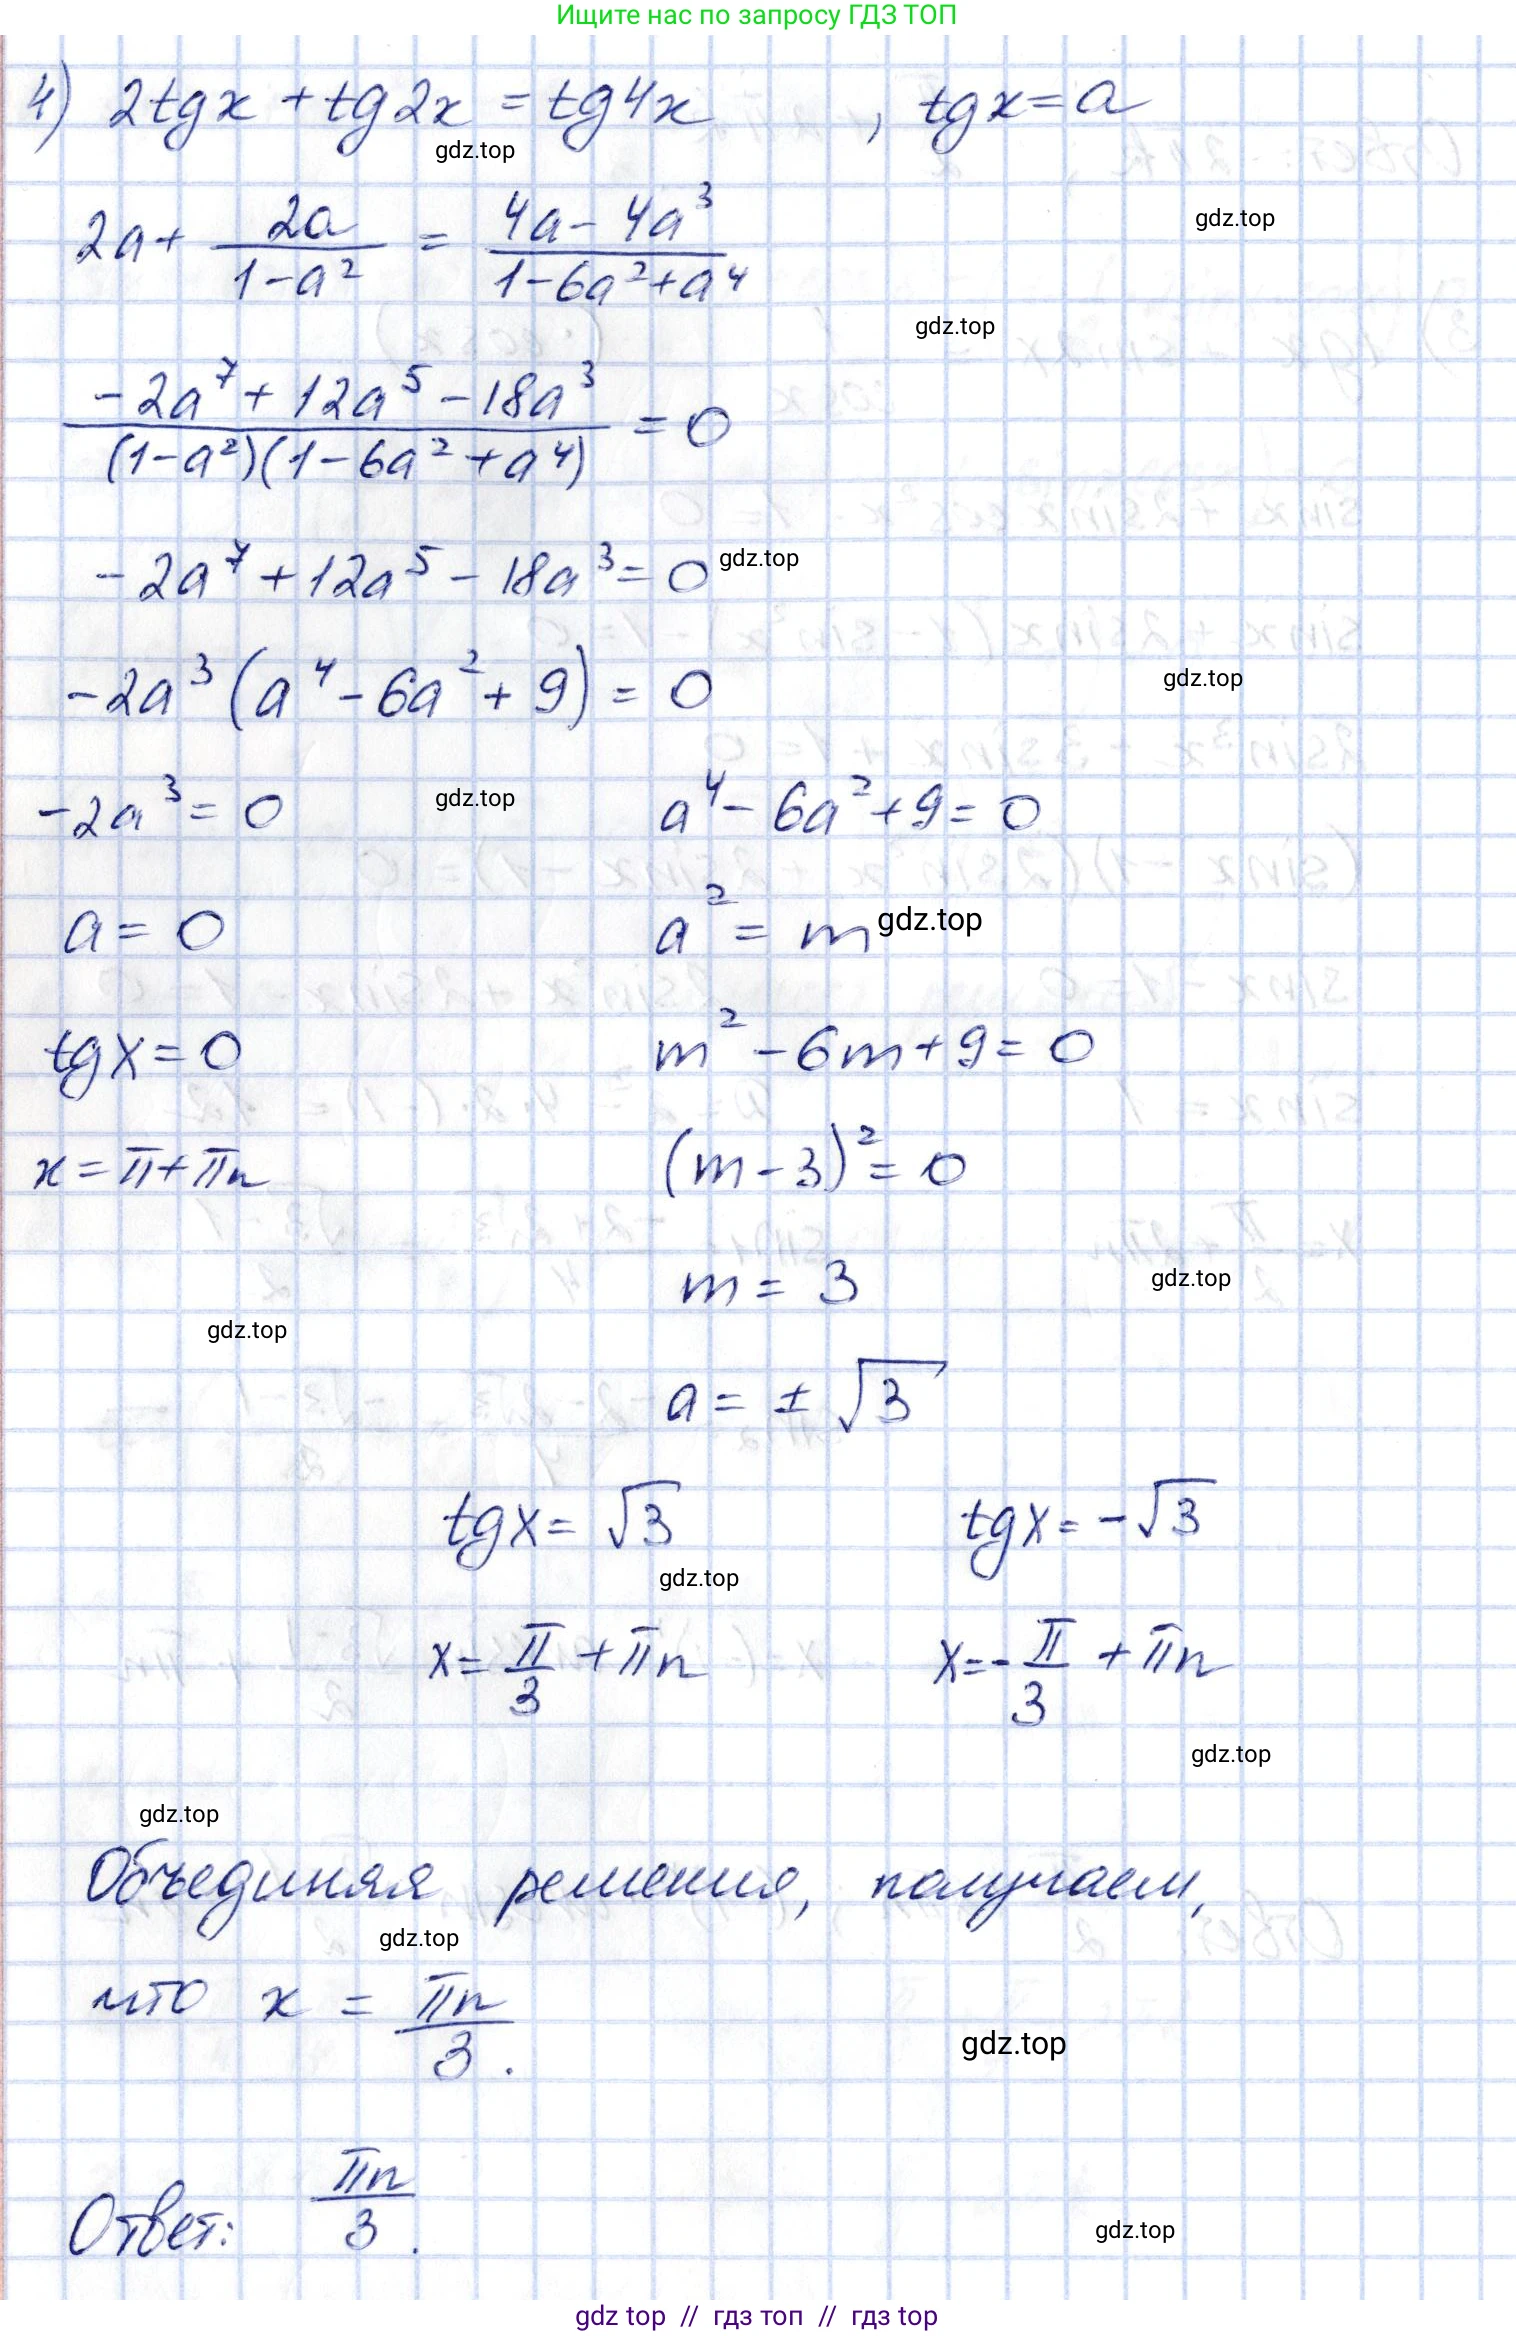 Ищите нас по запросу ГДЗ ТОП
4) 2tgx + tg2x = tg4x , tgx = a
gdz.top
2a + 2a/(1-a²) = (4a - 4a³)/(1-6a²+a⁴)
gdz.top
gdz.top
(-2a⁷ + 12a⁵ - 18a³)/((1-a²)(1-6a²+a⁴)) = 0
-2a⁷ + 12a⁵ - 18a³ = 0 gdz.top
-2a³(a⁴ - 6a² + 9) = 0
gdz.top
-2a³ = 0 gdz.top a⁴ - 6a² + 9 = 0
a = 0 a² = m gdz.top
tgx = 0 m² - 6m + 9 = 0
x = π + πn (m - 3)² = 0
m = 3 gdz.top
gdz.top
a = ± √3
tgx = √3 tgx = -√3
gdz.top
x = π/3 + πn x = -π/3 + πn
gdz.top
gdz.top
Объединяя решения, получаем,
gdz.top
что x = πn/3.
gdz.top
Ответ: πn/3.
gdz.top
gdz top // гдз топ // гдз top